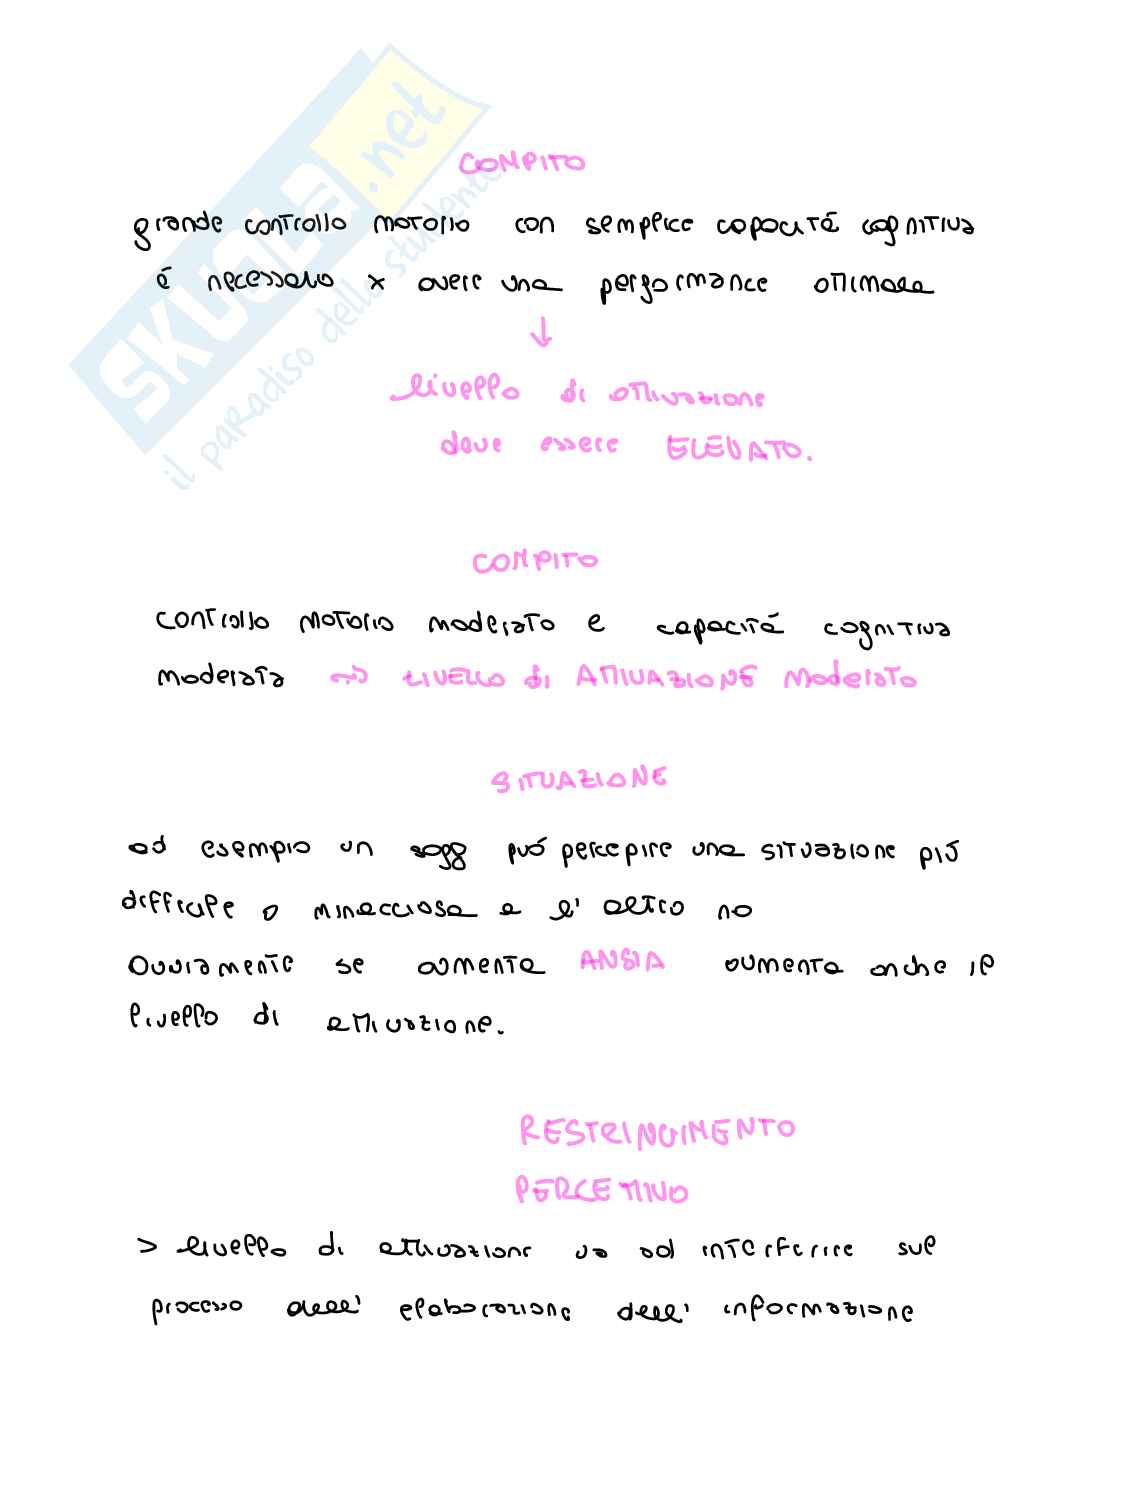 SKUOLA.net
il paradiso dello studente
COMPITO
grande controllo motorio con semplice capacità cognitiva
é necessario x avere una performance ottimale
↓
livello di attivazione
deve essere ELEVATO.
COMPITO
controllo motorio moderato e capacità cognitiva
moderata ~> LIVELLO di ATTIVAZIONE moderato
SITUAZIONE
ad esempio un sogg può percepire una situazione più
difficile o minacciosa e l'altro no
Ovviamente se aumenta ANSIA aumenta anche il
livello di attivazione.
RESTRINGIMENTO
PERCETTIVO
> livello di attivazione va ad interferire sul
processo dell'elaborazione dell'informazione